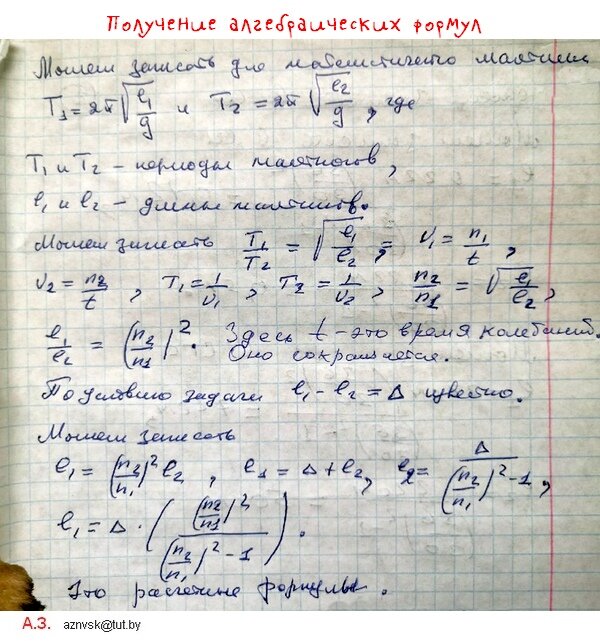 Получение алгебраических формул
Можем записать для математического маятника
T₁ = 2π√(l₁/g) и T₂ = 2π√(l₂/g), где
T₁ и T₂ – периоды маятников,
l₁ и l₂ – длины маятников.
Можем записать T₁/T₂ = √(l₁/l₂), ν₁ = n₁/t,
ν₂ = n₂/t, T₁ = 1/ν₁, T₂ = 1/ν₂, n₂/n₁ = √(l₁/l₂),
l₁/l₂ = (n₂/n₁)². Здесь t – это время колебаний.
Оно сокращается.
По условию задачи l₁ – l₂ = Δ известно.
Можем записать
l₁ = (n₂/n₁)² l₂, l₁ = Δ + l₂, l₂ = Δ/((n₂/n₁)² – 1),
l₁ = Δ · ((n₂/n₁)²/((n₂/n₁)² – 1)).
Это расчетные формулы.
А.З. aznvsk@tut.by